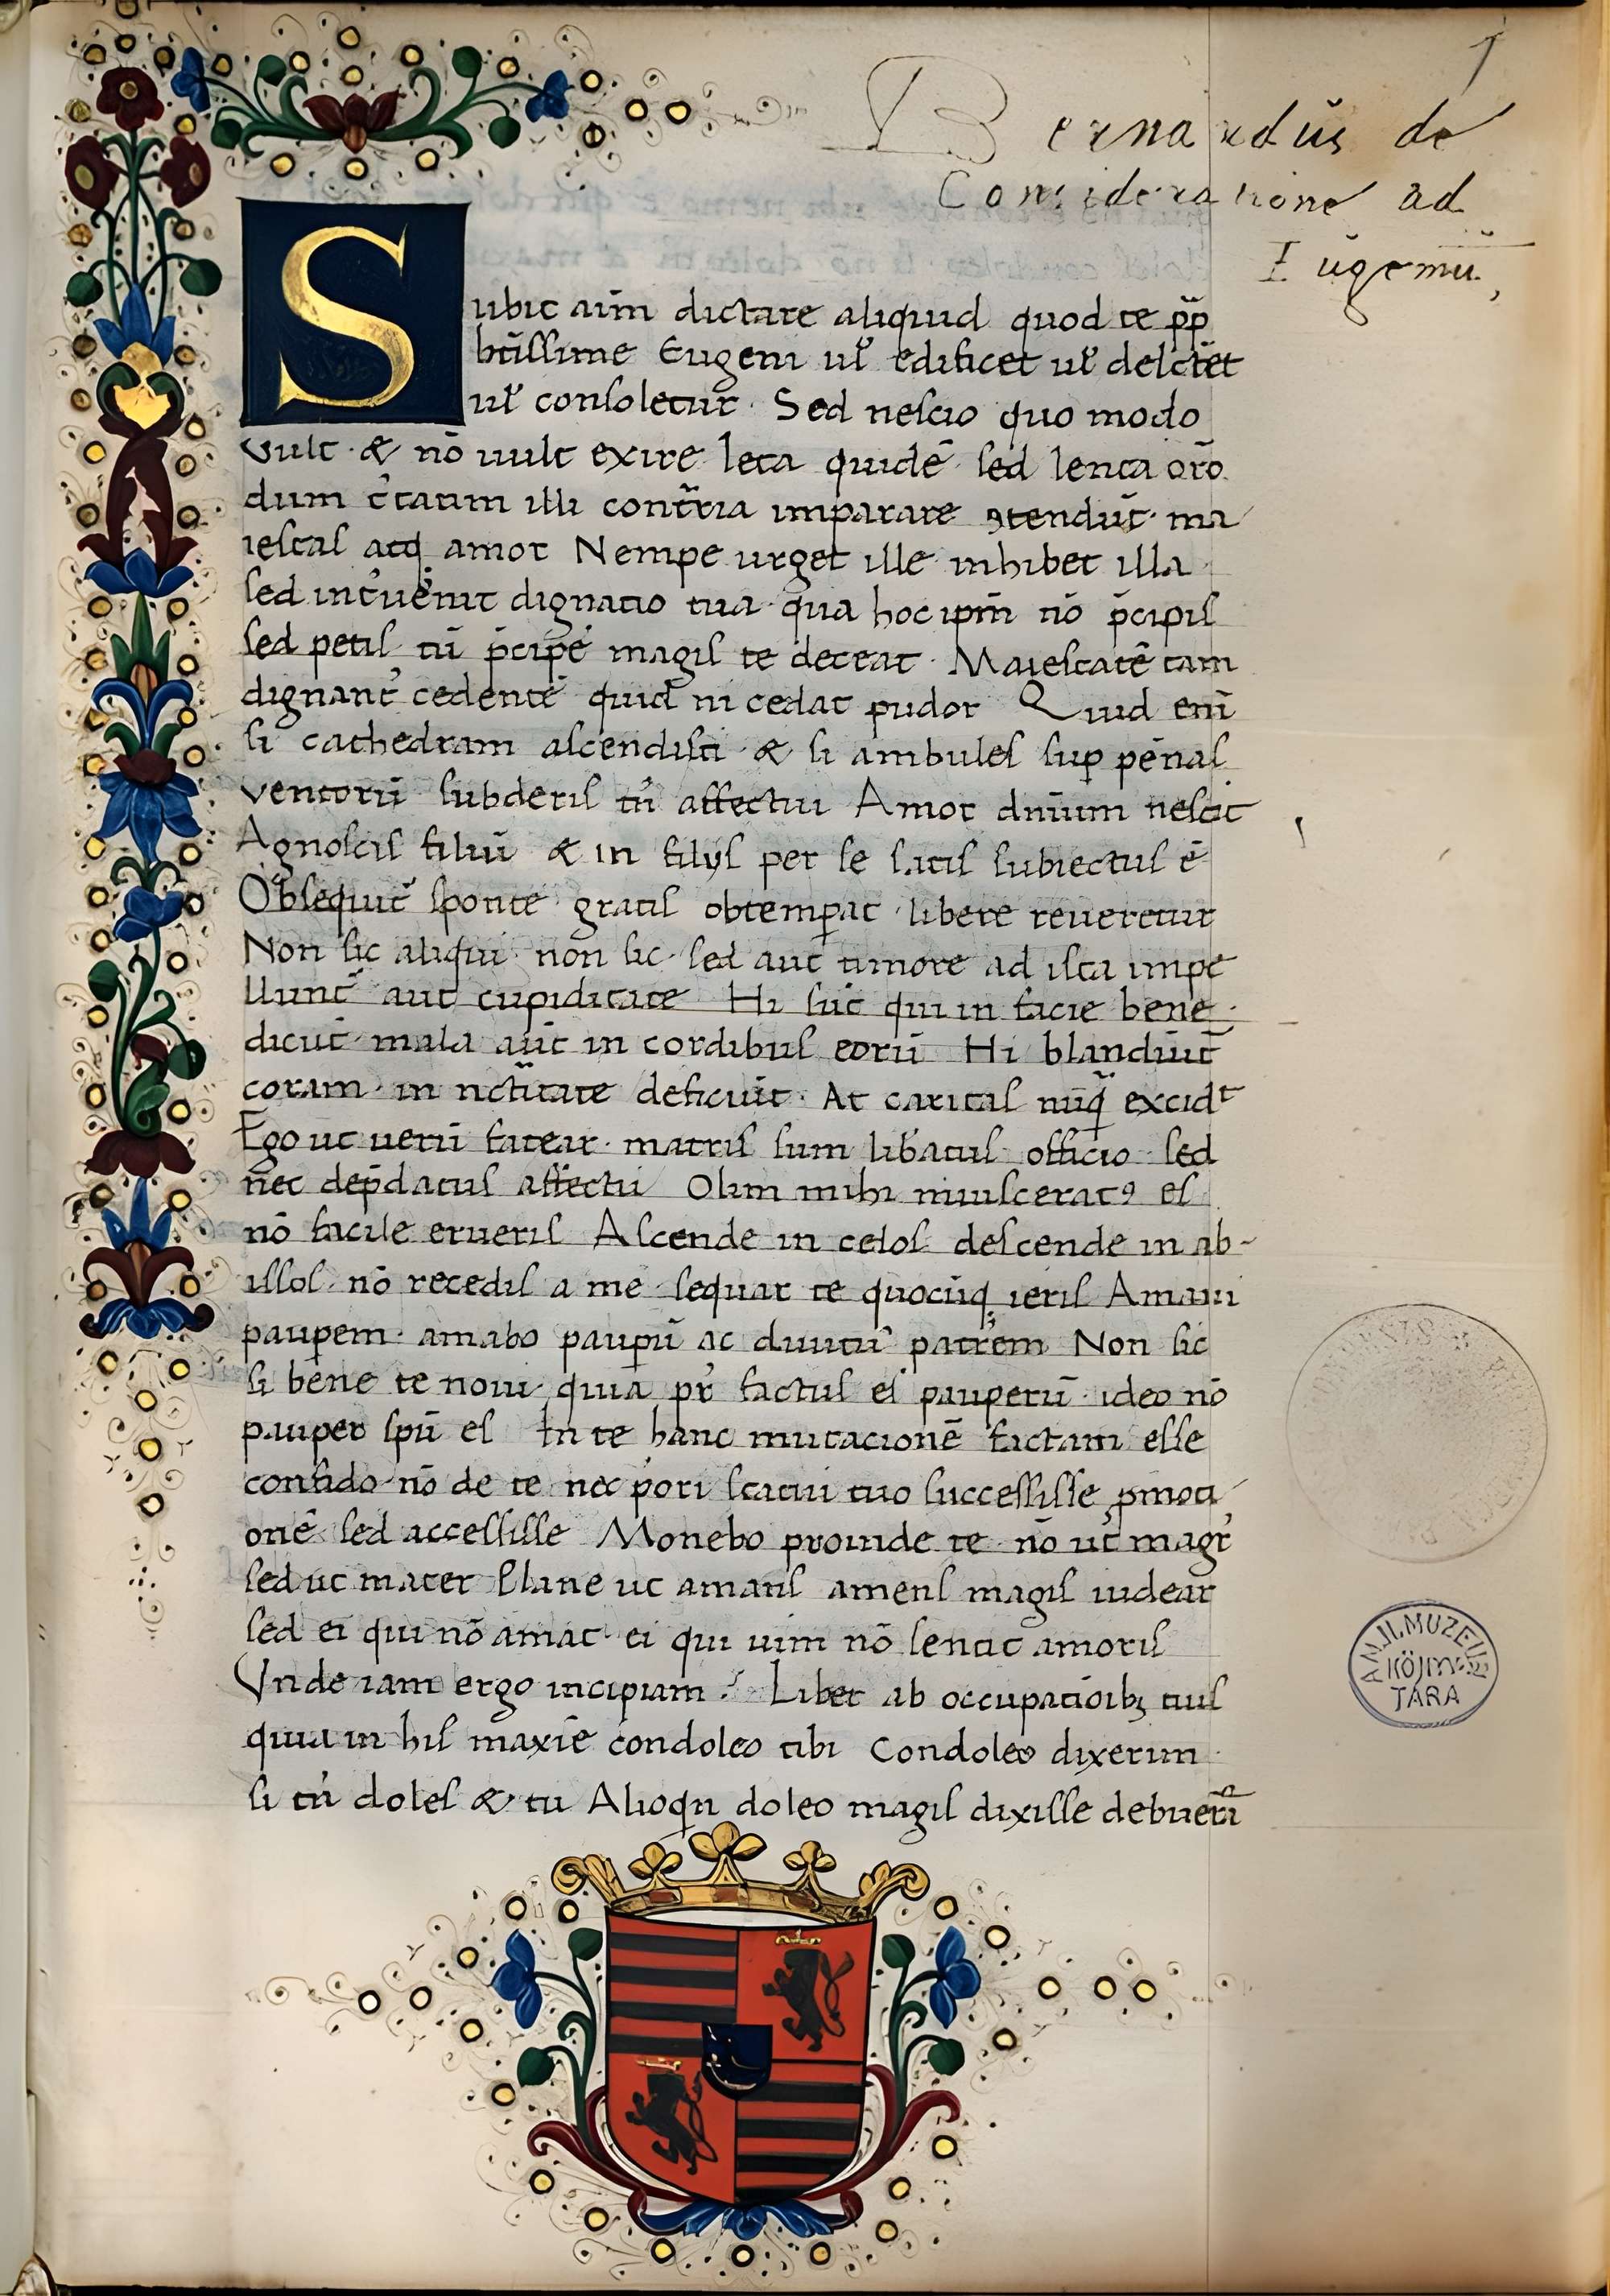 1
Bernardus de
Consideratione ad
Eugeniũ,
Subit aĩm dictare aliquid quod te pp̃
btĩssime Eugeni ul̃ edificet ul̃ delctẽt
ul̃ consoletur · Sed nescio quo modo
vult · & nõ uult exire leta quidẽ · sed lenta orõ
dum c̃tatim illi contr̃ria imparare ꝯtendũt · ma
iestas atq amor Nempe urget ille inhibet illa
sed int̃uẽnit dignatio tua · qua hoc ipm̃ nõ p̃cipis
sed petis tũ p̃cipẽ magis te deceat · Maiestatẽ tam
dignant̃ cedentẽ quid ni cedat pudor Quid enĩ
si cathedram ascendisti · & si ambules suꝑ pẽnas
ventorũ subderis tñ affectui Amor dnĩum nescit
Agnoscit filiũ & in filijs per se satis subiectus ẽ
Obsequit̃ sponte gratis obtemꝑat · libere reueretur
Non sic aliqui · non sic · sed aut timore ad ista impe
llunt̃ aut cupiditate Hi sũt qui in facie bene
dicũt · mala aũt in cordibus eorũ Hi blandiũt̃
coram · in nc̃titate deficiũt · At caritas nũq̃ excidᵗ
Ego ut uerũ fatear · matris sum lib̃atus officio sed
nẽc dep̃datus affectu Olim mihi inuisceratꝰ es
nõ facile erueris Ascende in celos descende in ab-
issos · nõ recedis a me sequar te quocũq ieris Amaui
pauꝑem · amabo pauꝑũ ac diuitũ patrẽm Non sic
si bene te noui · quia pr̃ factus es pauperũ · ideo nõ
pauper spũ es In te hanc mutacionẽ factam esse
confido · nõ de te nec p̃ori statui tuo successisse ꝓmoti
onẽ sed accessisse Monebo proinde te nõ ut magr̃
sed ut mater Plane ut amans amens magis uidear
sed ei qui nõ amat · ei qui uim nõ sentit amoris
Vnde iam ergo incipiam ? Libet ab occupatiõibꝫ tuis
quia in his maxiẽ condoleo tibi Condoleo dixerim
si tñ doles & tu Alioqn doleo magis dixisse debuerĩ
MUZEUM
KÖNYV
TÁRA